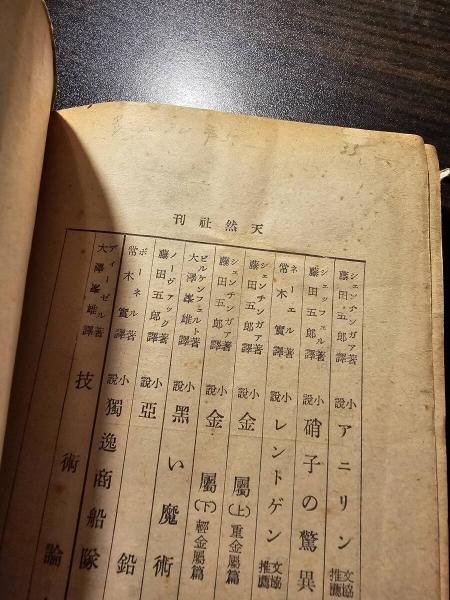 天然社刊
シェンチンガア著
藤田五郎譯
小説 アニリン 文協推薦
シェッフェル著
藤田五郎譯
小説 硝子の驚異
ネーエル著
常木實譯
小説 レントゲン 文協推薦
シェンチンガア著
藤田五郎譯
小説 金屬(上)重金屬篇
シェンチンガア著
藤田五郎譯
小説 金屬(下)輕金屬篇
ビルケンフェルト著
大澤峯雄譯
小説 黑い魔術
ノーヴァック著
藤田五郎譯
小説 亞鉛
ボーネル著
常木實譯
獨逸商船隊
ディーゼル著
大澤峯雄譯
技術論